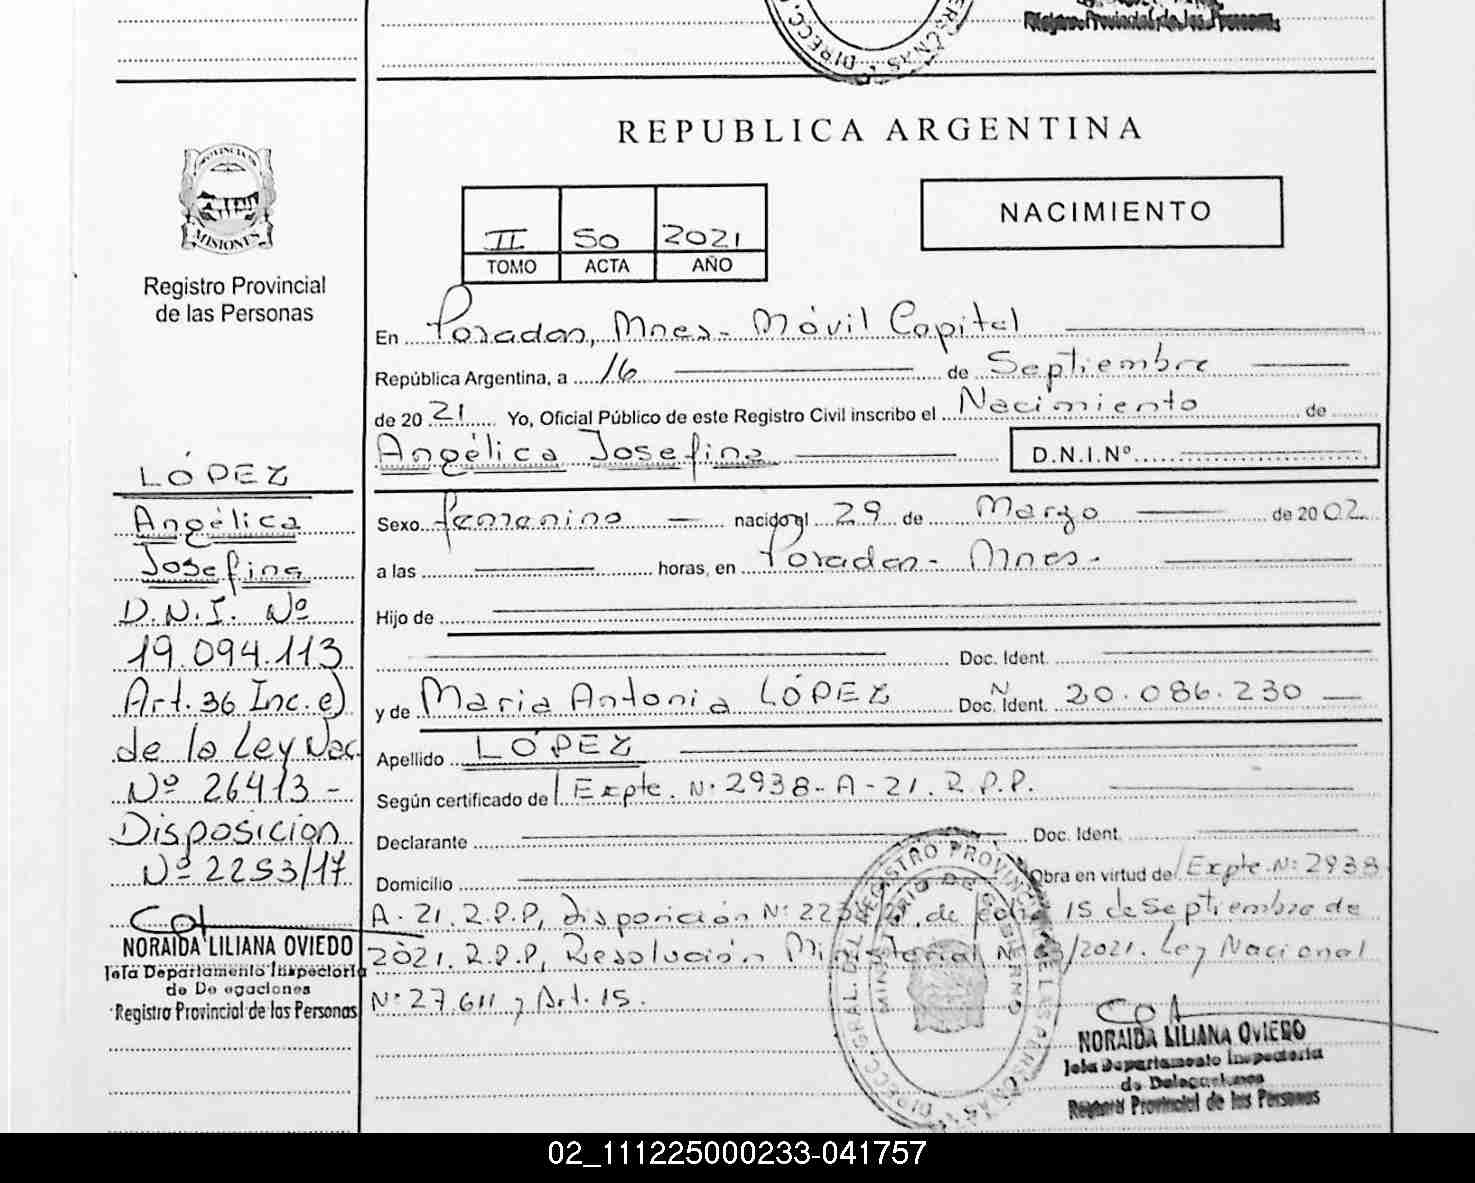 DIRECC.
Registro Provincial de las Personas
PROVINCIA DE
MISIONES
Registro Provincial
de las Personas
REPUBLICA ARGENTINA
II 50 2021
TOMO ACTA AÑO
NACIMIENTO
En Posadas, Mnes- Móvil Capital
República Argentina, a 16 de Septiembre
de 20 21 Yo, Oficial Público de este Registro Civil inscribo el Nacimiento de
Angélica Josefina D.N.I.Nº
Sexo femenino nacido el 29 de Marzo de 2002
a las horas, en Posadas- Mnes-
Hijo de
Doc. Ident.
y de Maria Antonia LÓPEZ Doc. Ident. N 20.086.230
Apellido LÓPEZ
Según certificado de Expte. N: 2938-A-21. R.P.P.
Declarante Doc. Ident.
Domicilio Obra en virtud de Expte. N: 2938
A-21. R.P.P, Disposición N: de fecha 15 de Septiembre de
2021. R.P.P, Resolución Ministerial N /2021. Ley Nacional
N: 27.611 y Art. 15.
LÓPEZ
Angélica
Josefina
D.N.I. Nº
19.094.113
Art. 36 Inc. e)
de la Ley Nac.
Nº 26413 -
Disposición
Nº 2253/17
NORAIDA LILIANA OVIEDO
Jefa Departamento Inspectoría
de Delegaciones
Registro Provincial de las Personas
DIRECC. GRAL. DEL REGISTRO PROVINCIAL DE LAS PERSONAS
MINISTERIO DE GOBIERNO
NORAIDA LILIANA OVIEDO
Jefa Departamento Inspectoría
de Delegaciones
Registro Provincial de las Personas
02_111225000233-041757